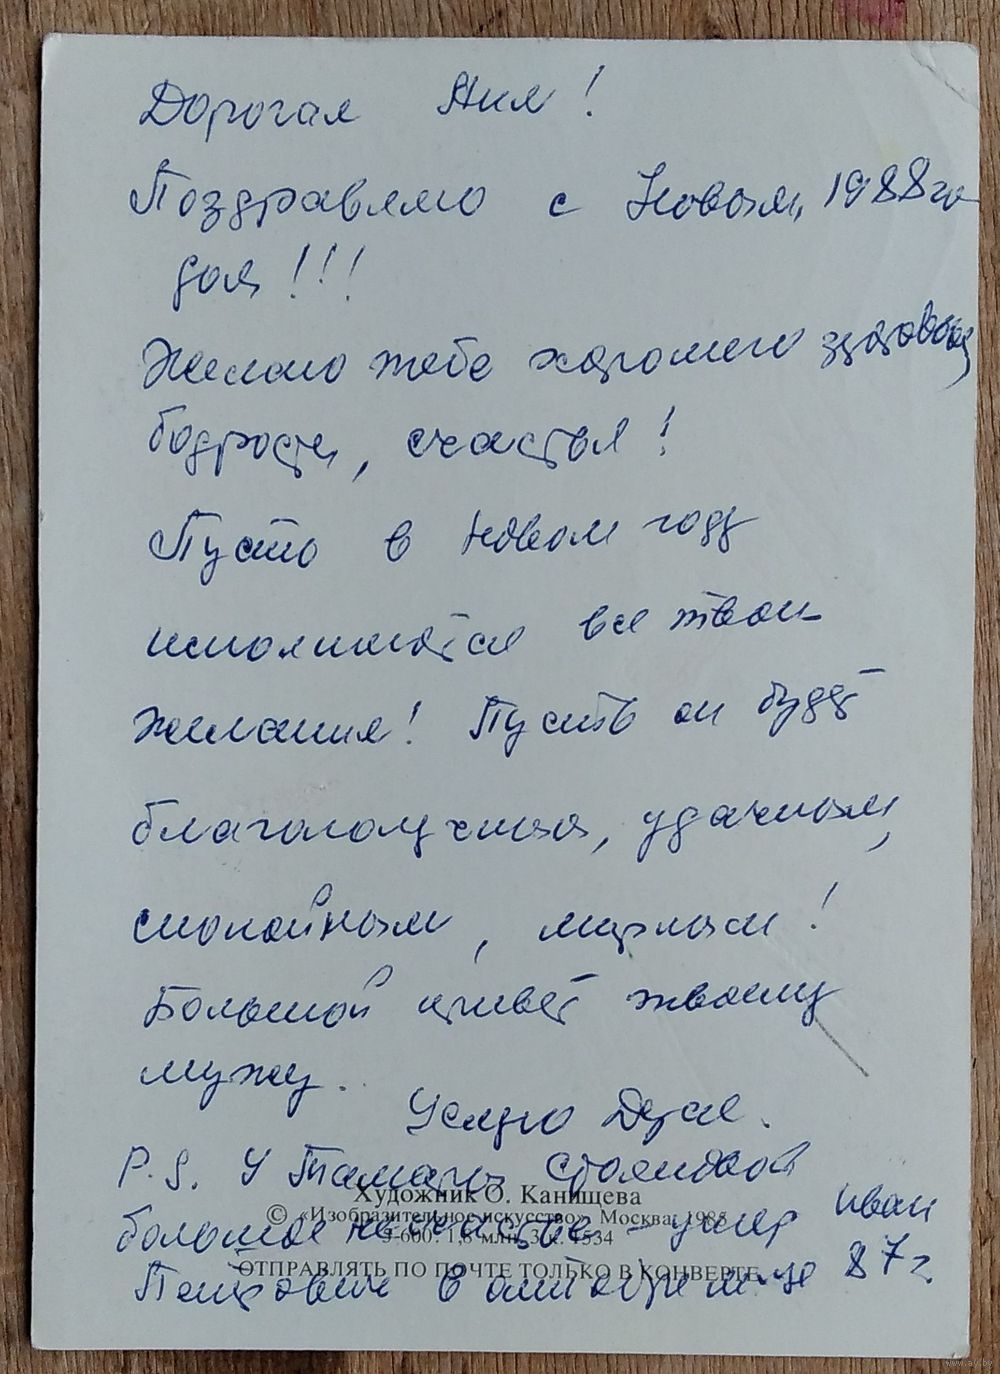 Дорогая Аня!
Поздравляю с Новым, 1988 го
дом!!!
Желаю тебе хорошего здоровья,
бодрости, счастья!
Пусть в Новом году
исполнятся все твои
желания! Пусть он будет
благополучным, удачным,
спокойным, мирным!
Большой привет твоему
мужу.
Целую
P.S. У Тамары
большое несчастье – умер Иван
Петрович в октябре м-це 87 г.
Художник О. Канищева
© «Изобразительное искусство». Москва. 1985
5-600. 1,8 млн. 1534
ОТПРАВЛЯТЬ ПО ПОЧТЕ ТОЛЬКО В КОНВЕРТЕ
www.ay.by